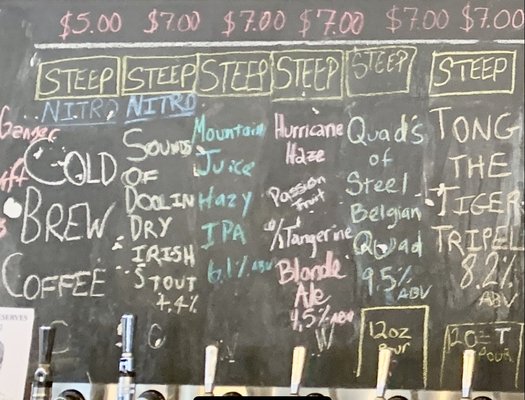 $5.00 $7.00 $7.00 $7.00 $7.00 $7.00
STEEP
NITRO
COLD
BREW
COFFEE
STEEP
NITRO
SOUNDS
OF
DOOLIN
DRY
IRISH
STOUT
4.4%
STEEP
Mountain
Juice
Hazy
IPA
6.1% ABV
STEEP
Hurricane
Haze
Passion
Fruit
w/Tangerine
Blonde
Ale
4.5% ABV
STEEP
Quad's
of
Steel
Belgian
Quad
9.5%
ABV
12oz
Pour
STEEP
TONG
THE
TIGER
TRIPEL
8.2%
ABV
12oz
POUR